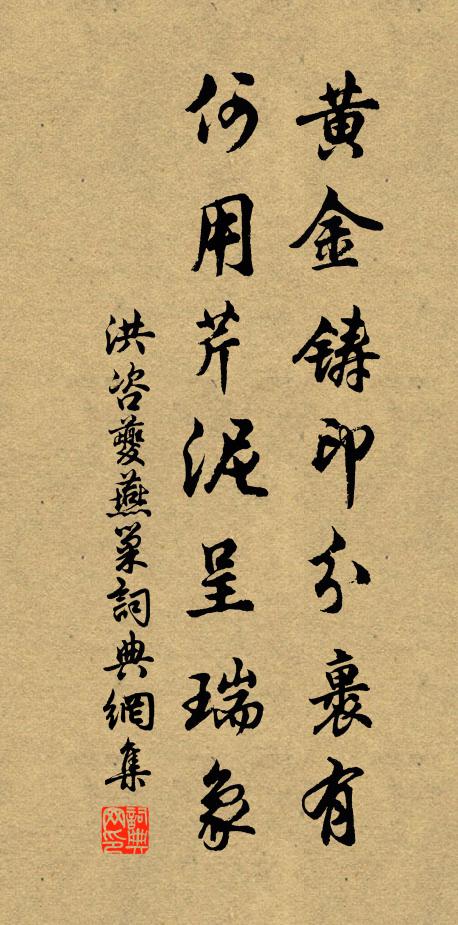 黄金鑄印分裹有
何用芹泥呈瑞象
洪咨夔燕巢詞典網集
詞典網印